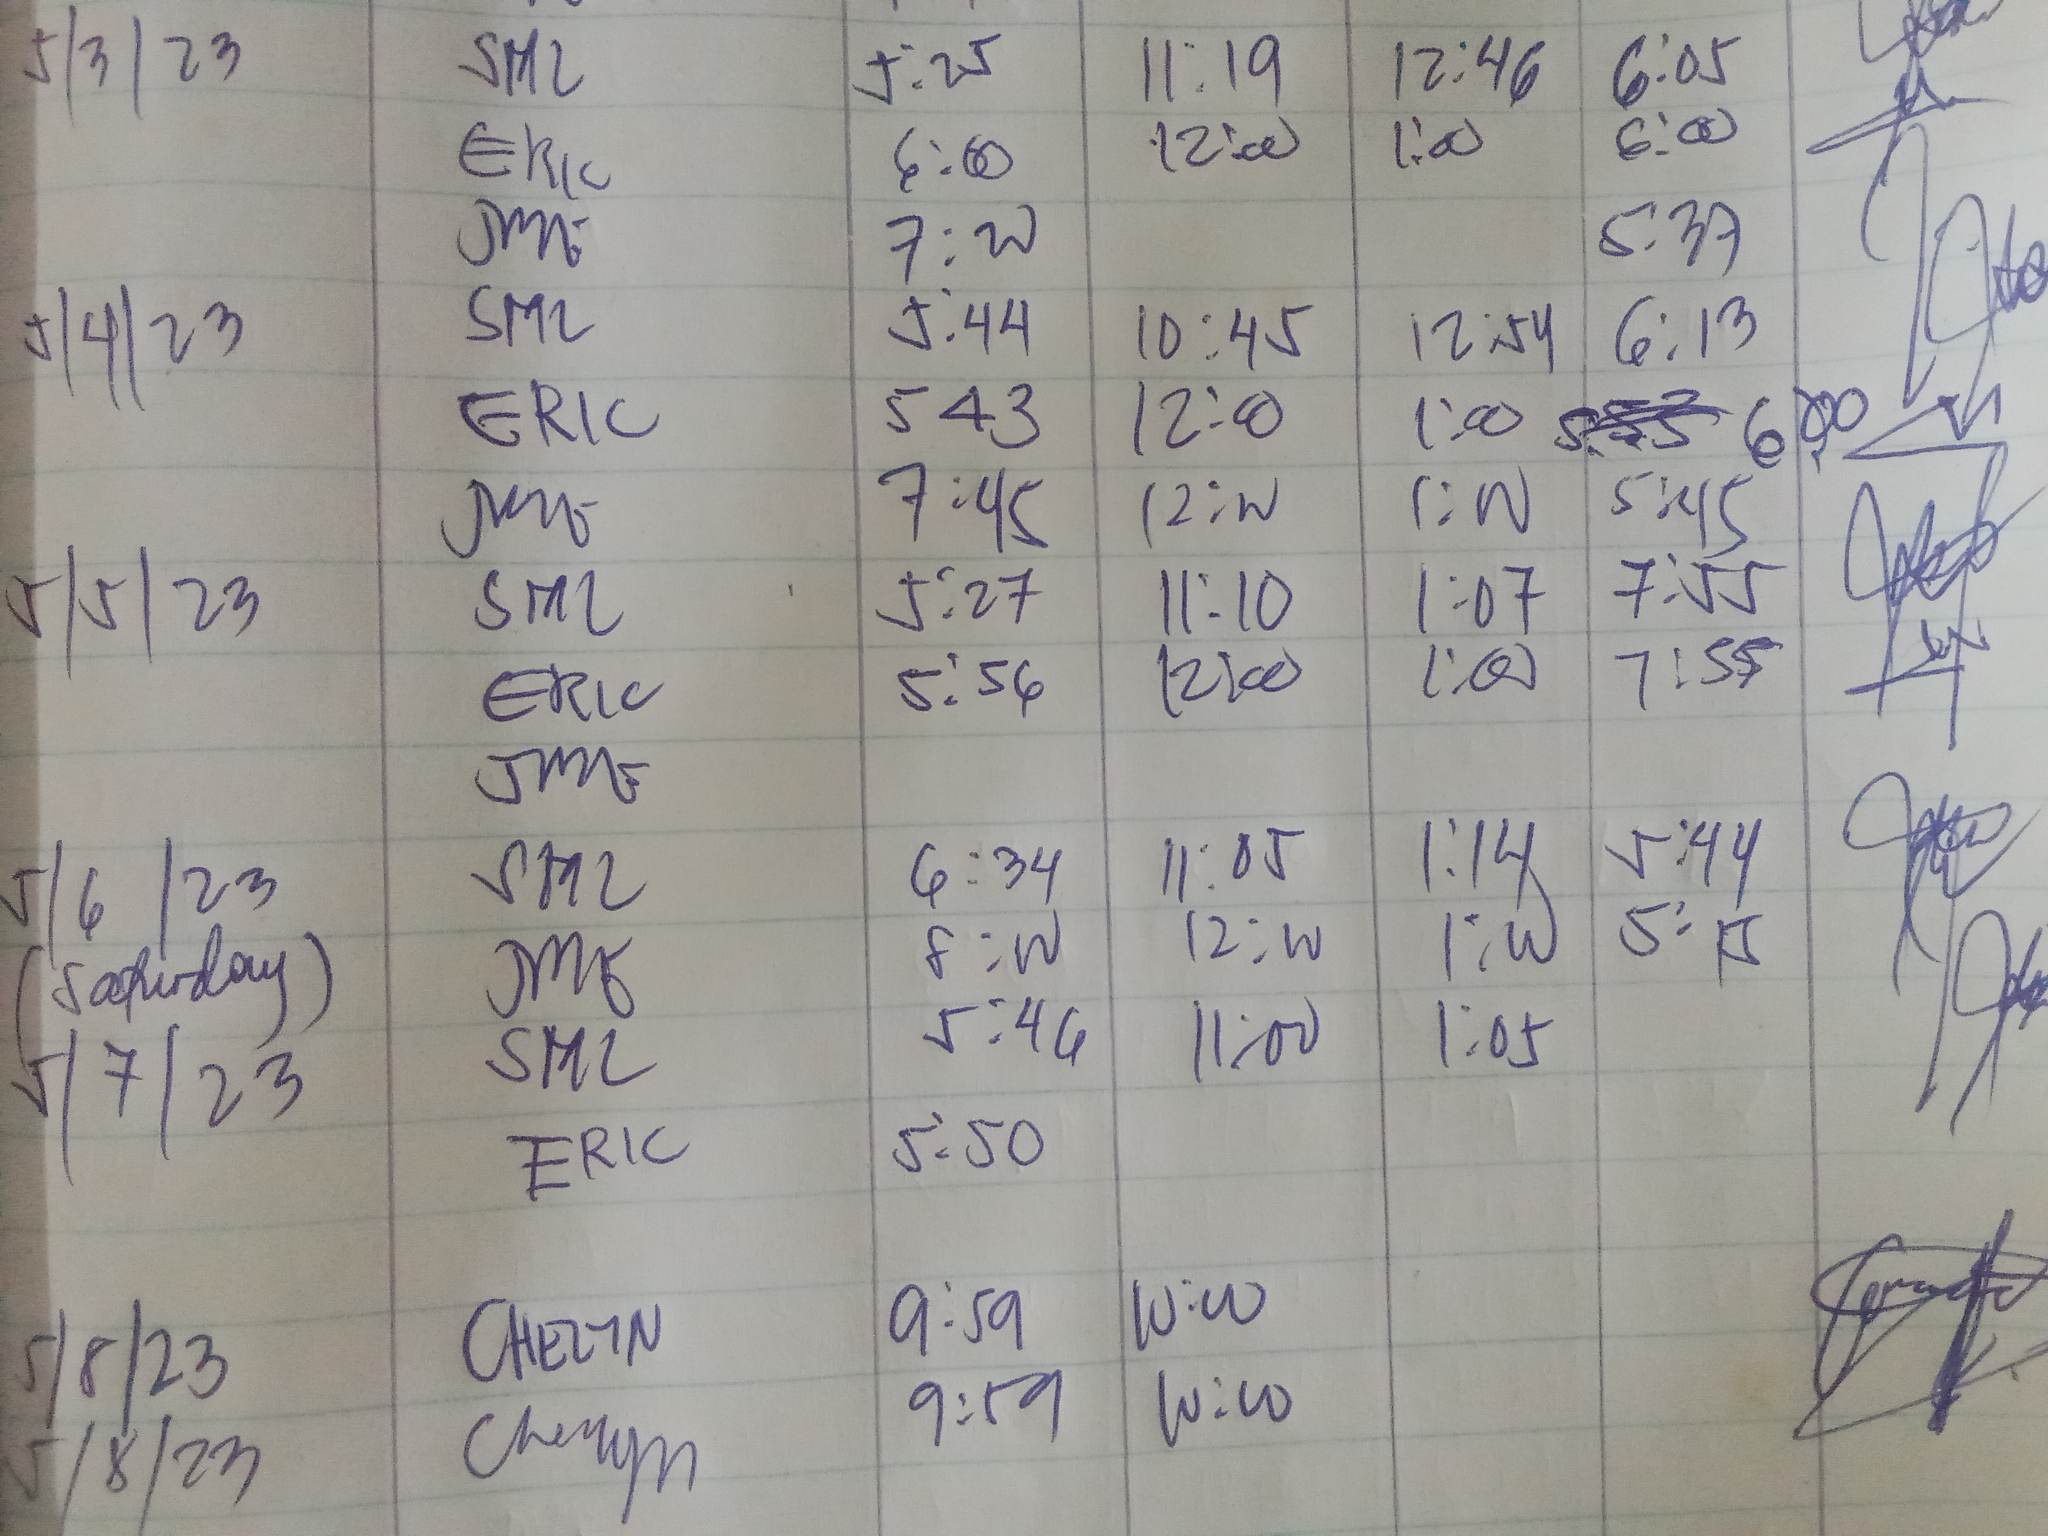 5/3/23 SML 5:25 11:19 12:46 6:05
ERIC 6:00 12:00 1:00 6:00
JME 7:00 5:37
5/4/23 SML 5:44 10:45 12:54 6:13
ERIC 5 43 12:00 1:00 6:00
JME 7:45 12:00 1:00 5:45
5/5/23 SML 5:27 11:10 1:07 7:55
ERIC 5:56 12:00 1:00 7:55
JME
5/6/23 SML 6:34 11:05 1:14 5:44
(Saturday) JME 8:00 12:00 1:00 5:15
5/7/23 SML 5:46 11:00 1:05
ERIC 5:50
5/8/23 CHELYN 9:59 10:00
5/8/23 Chelyn 9:59 10:00